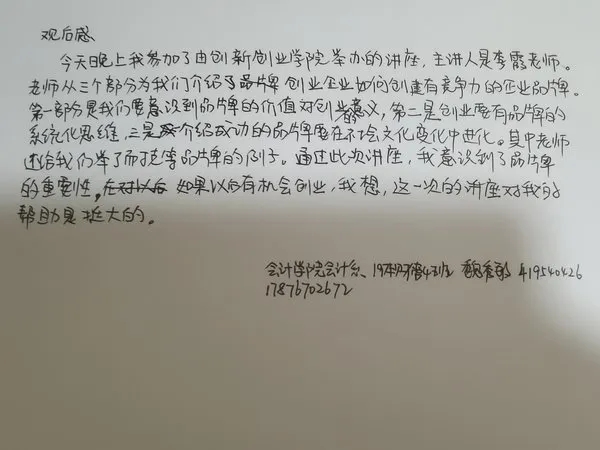 观后感
今天晚上我参加了由创新创业学院举办的讲座,主讲人是李霞老师。
老师从三个部分为我们介绍了品牌创业企业如何创建有竞争力的企业品牌。
第一部分是我们要意识到品牌的价值对创业意义,第二是创业要有品牌的
系统化思维,三是介绍成功的品牌要在社会文化变化中进化。其中老师
还给我们举了而克李品牌的例子。通过此次讲座,我意识到了品牌
的重要性,如果以后有机会创业,我想,这一次的讲座对我的
帮助是挺大的。
会计学院会计系、19 班 419540426
17876702672